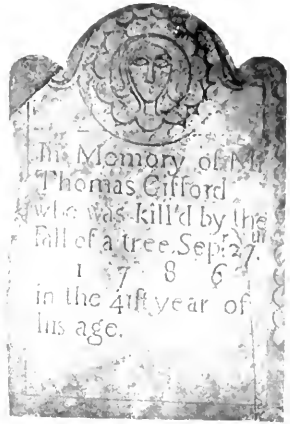 In Memory of Mr
Thomas Gifford
who was kill'd by the
fall of a tree. Sepr. 27th.
1 7 8 6
in the 41st year of
his age.